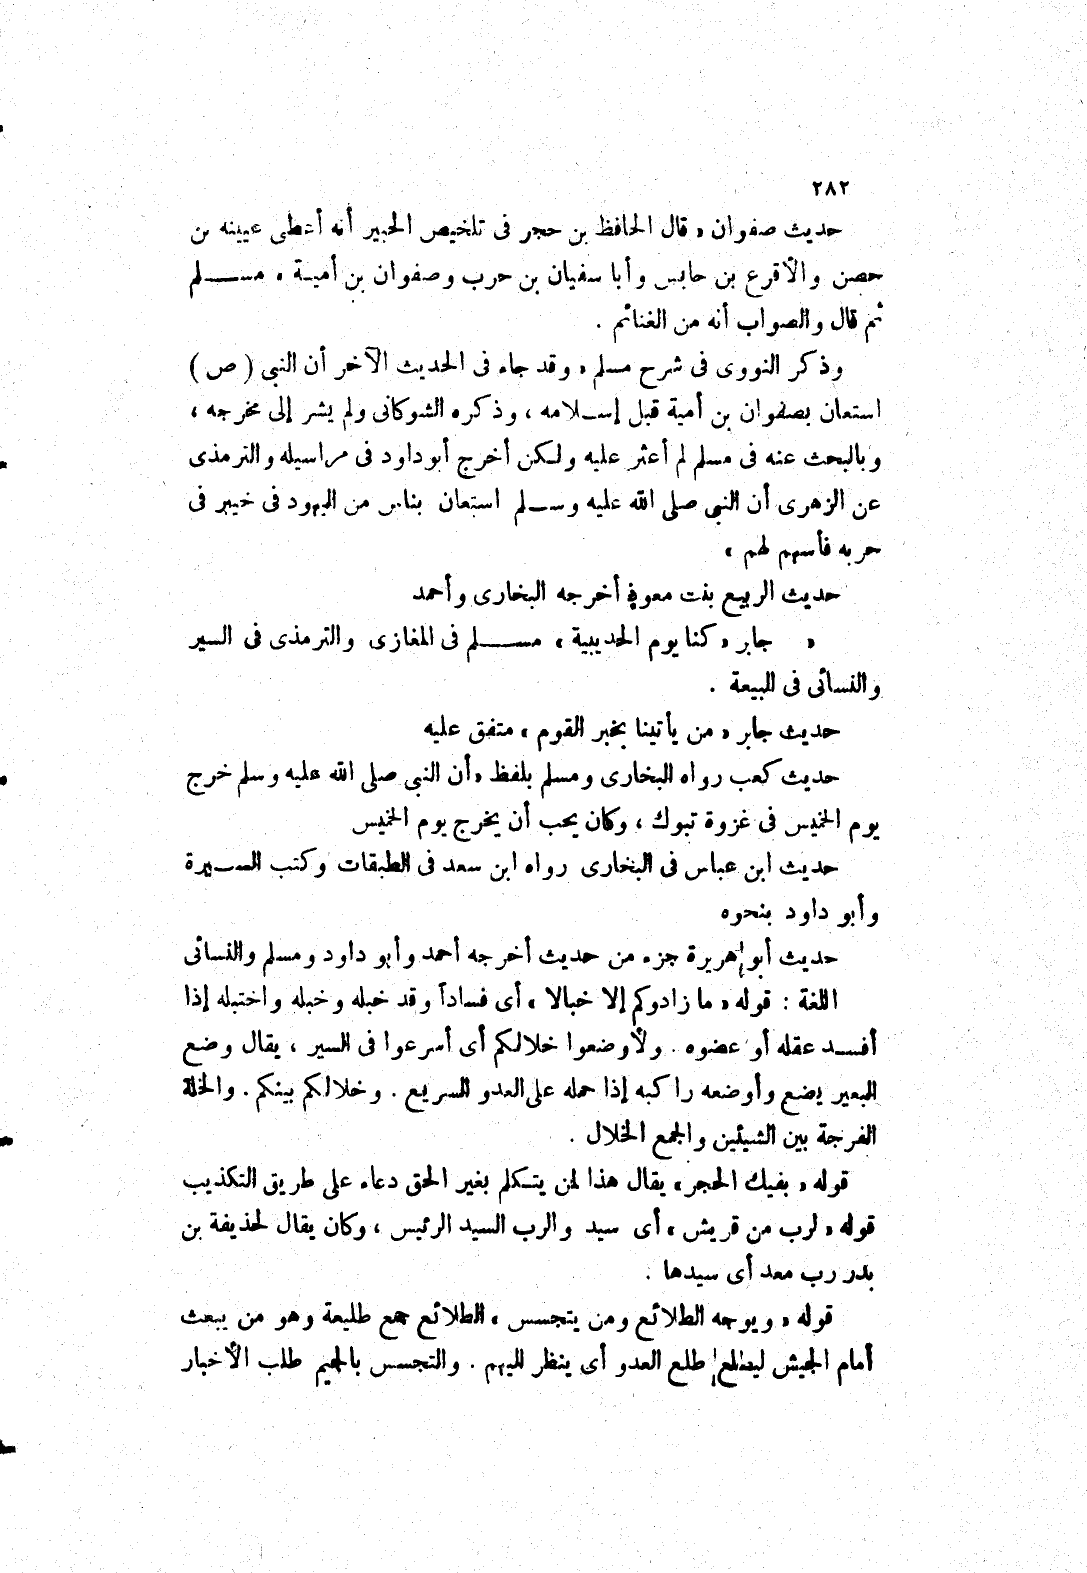 ٢٨٢
حديث صفوان « قال الحافظ بن حجر فى تلخيص الحبير أنه أعطى عيينه بن
حصن والأقرع بن حابس وأبا سفيان بن حرب وصفوان بن أميـة » مســـلم
ثم قال والصواب أنه من الغنائم .
وذكر النووى فى شرح مسلم « وقد جاء فى الحديث الآخر أن النبى ( ص )
استعان بصفوان بن أمية قبل إســلامه ، وذكره الشوكانى ولم يشر إلى مخرجه ،
وبالبحث عنه فى مسلم لم أعثر عليه ولكن أخرج أبو داود فى مراسيله والترمذى
عن الزهرى أن النبى صلى الله عليه وســلم استعان بناس من اليهود فى خيبر فى
حربه فأسهم لهم »
حديث الربيع بنت معوذ أخرجه البخارى وأحمد
« جابر « كنا يوم الحديبية » مســـلم فى المغازى والترمذى فى السير
والنسائى فى البيعة .
حديث جابر « من يأتينا بخبر القوم » متفق عليه
حديث كعب رواه البخارى ومسلم بلفظ « أن النبى صلى الله عليه وسلم خرج
يوم الخميس فى غزوة تبوك ، وكان يحب أن يخرج يوم الخميس
حديث ابن عباس فى البخارى رواه ابن سعد فى الطبقات وكتب الســيرة
وأبو داود بنحوه
حديث أبو هريرة جزء من حديث أخرجه أحمد وأبو داود ومسلم والنسائى
اللغة : قوله « ما زادوكم إلا خبالا » أى فساداً وقد خبله وخبله واختبله إذا
أفســد عقله أو عضوه . ولأوضعوا خلالكم أى أسرعوا فى السير ، يقال وضع
البعير يضع وأوضعه راكبه إذا حمله على العدو السريع . وخلالكم بينكم . والخلة
الفرجة بين الشيئين والجمع الخلال .
قوله « بفيك الحجر » يقال هذا لمن يتكلم بغير الحق دعاء على طريق التكذيب
قوله « لرب من قريش » أى سيد والرب السيد الرئيس ، وكان يقال لحذيفة بن
بدر رب معد أى سيدها .
قوله « ويوجه الطلائع ومن يتجسس » الطلائع جمع طليعة وهو من يبعث
أمام الجيش ليطلع طلع العدو أى ينظر اليهم . والتجسس بالجيم طلب الأخبار